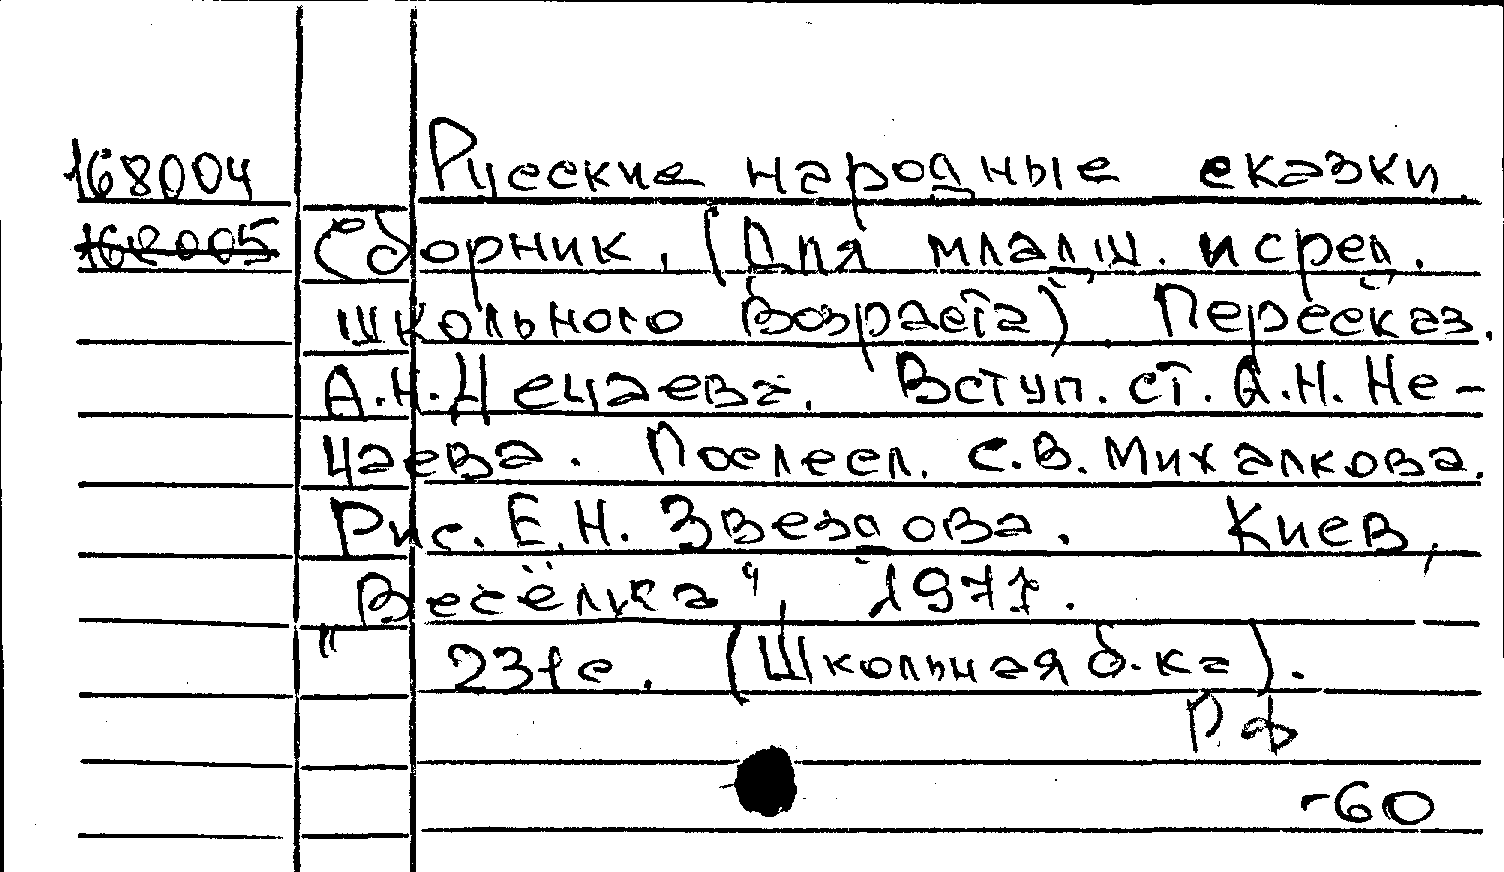 168004 Русские народные сказки.
168005 Сборник. (Для младш. и сред.
школьного возраста). Пересказ.
А.Н. Нечаева. Вступ. ст. А.Н. Не-
чаева. Послесл. С.В. Михалкова.
Рис. Е.Н. Звездова. Киев,
"Весёлка", 1977.
231 с. (Школьная б-ка).
Р ф
-60